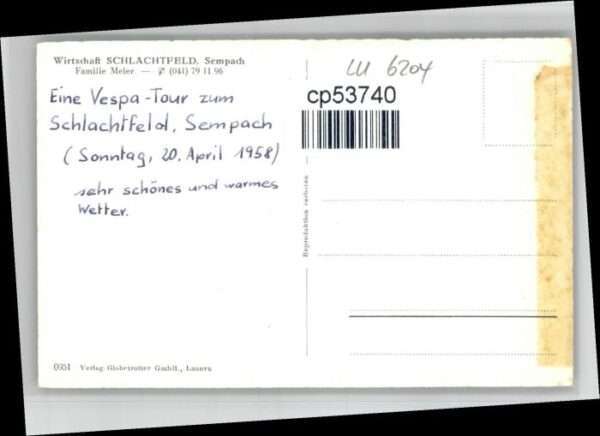 Wirtschaft SCHLACHTFELD, Sempach
Familie Meier — ✆ (041) 79 11 96
Eine Vespa-Tour zum
Schlachtfeld, Sempach
(Sonntag, 20. April 1958)
sehr schönes und warmes
Wetter.
LU 6204
cp53740
Reproduktion verboten
0351 Verlag Globetrotter GmbH., Luzern